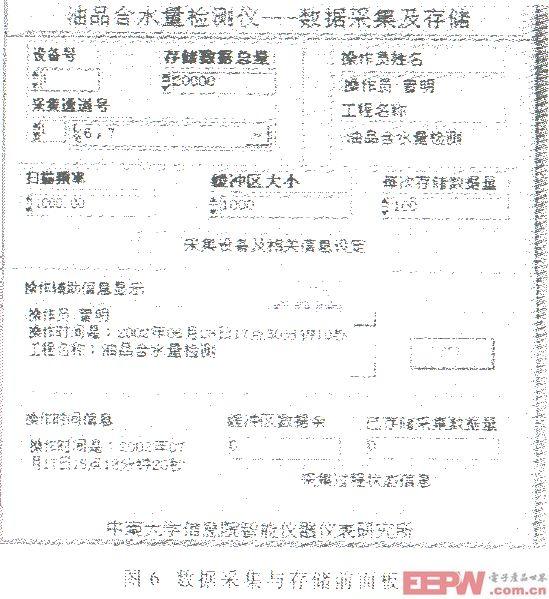 油品含水量检测仪---数据采集及存储
设备号 存储数据总量 操作员姓名
1 20000 操作员 雷明
采集通道号 工程名称
6,7 油品含水量检测
扫描频率 缓冲区大小 每次存储数据量
1000.00 1000 100
采集设备及相关信息设定
操作辅助信息显示
操作员 雷明
操作时间是:2002年06月
工程名称:油品含水量检测
操作时间信息 缓冲区数据余 已存储采集数据量
操作时间是:2002年07 0 0
月17日
采集过程状态信息
中南大学信息院智能仪器仪表研究所
图6 数据采集与存储前面板
EEPW 电子产品世界
.com.cn